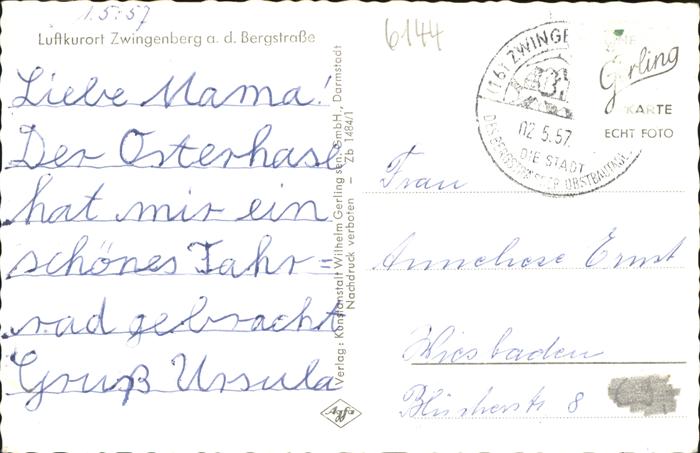 1.5.57
Luftkurort Zwingenberg a. d. Bergstraße
6144
Liebe Mama!
Der Osterhase
hat mir ein
schönes Fahr=
rad gebracht
Gruß Ursula
Verlag: Kunstanstalt Wilhelm Gerling sen. GmbH., Darmstadt
Nachdruck verboten – Zb 1484/1
Agfa
(16) ZWINGE
02.5.57
DIE STADT
OBSTBAUTAGE
EINE
Gerling
KARTE
ECHT FOTO
Frau
Anneliese Ernst
Wiesbaden
Blücherstr 8